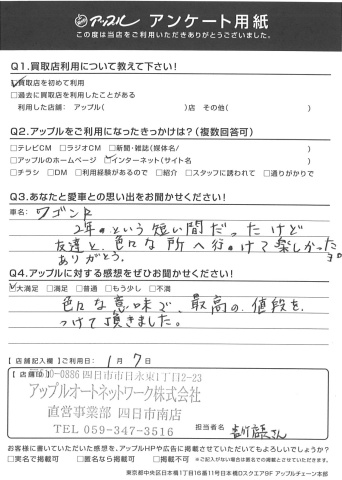 アップル アンケート用紙
この度は当店をご利用いただきありがとうございました。
Q1.買取店利用について教えて下さい!
☑買取店を初めて利用
□過去に買取店を利用したことがある
利用した店舗: アップル( )店 その他( )
Q2.アップルをご利用になったきっかけは?(複数回答可)
□テレビCM □ラジオCM □新聞・雑誌(媒体名/ )
□アップルのホームページ ☑インターネット(サイト名 )
□チラシ □DM □利用経験があるので □紹介 □スタッフに誘われて □通りがかりで
Q3.あなたと愛車との思い出をお聞かせください!
車名: ワゴンR
2年。という短い間だったけど
友達と、色々な所へ行。けて楽しかった
ありがとう。
Q4.アップルに対する感想をぜひお聞かせください!
☑大満足 □満足 □普通 □もう少し □不満
色々な意味で、最高の、値段を、
つけて頂きました。
【店舗記入欄】ご利用日: 1月 7日
【店舗ID】
〒510-0886 四日市市日永東1丁目2-23
アップルオートネットワーク株式会社
直営事業部 四日市南店
TEL 059-347-3516
担当者名 吉川店長さん
お客様に書いていただいた感想を、アップルHPや広告に掲載させていただいてもよろしいでしょうか?
□実名で掲載可 □匿名なら掲載可 □掲載不可 ※ご記入がない場合は匿名での掲載とさせていただきます。
東京都中央区日本橋1丁目16番11号日本橋Dスクエア9F アップルチェーン本部